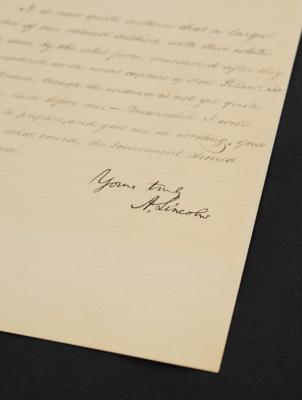 It is now quite certain that a large
of our colored soldiers, with their white
were by the rebel force, massacred after they
at the recent capture of Fort Pillow. So
known, though the evidence is not yet quite
laid before me. — Meanwhile I will
to prepare, and give me in writing your
what course, the Government should
Yours truly
A. Lincoln